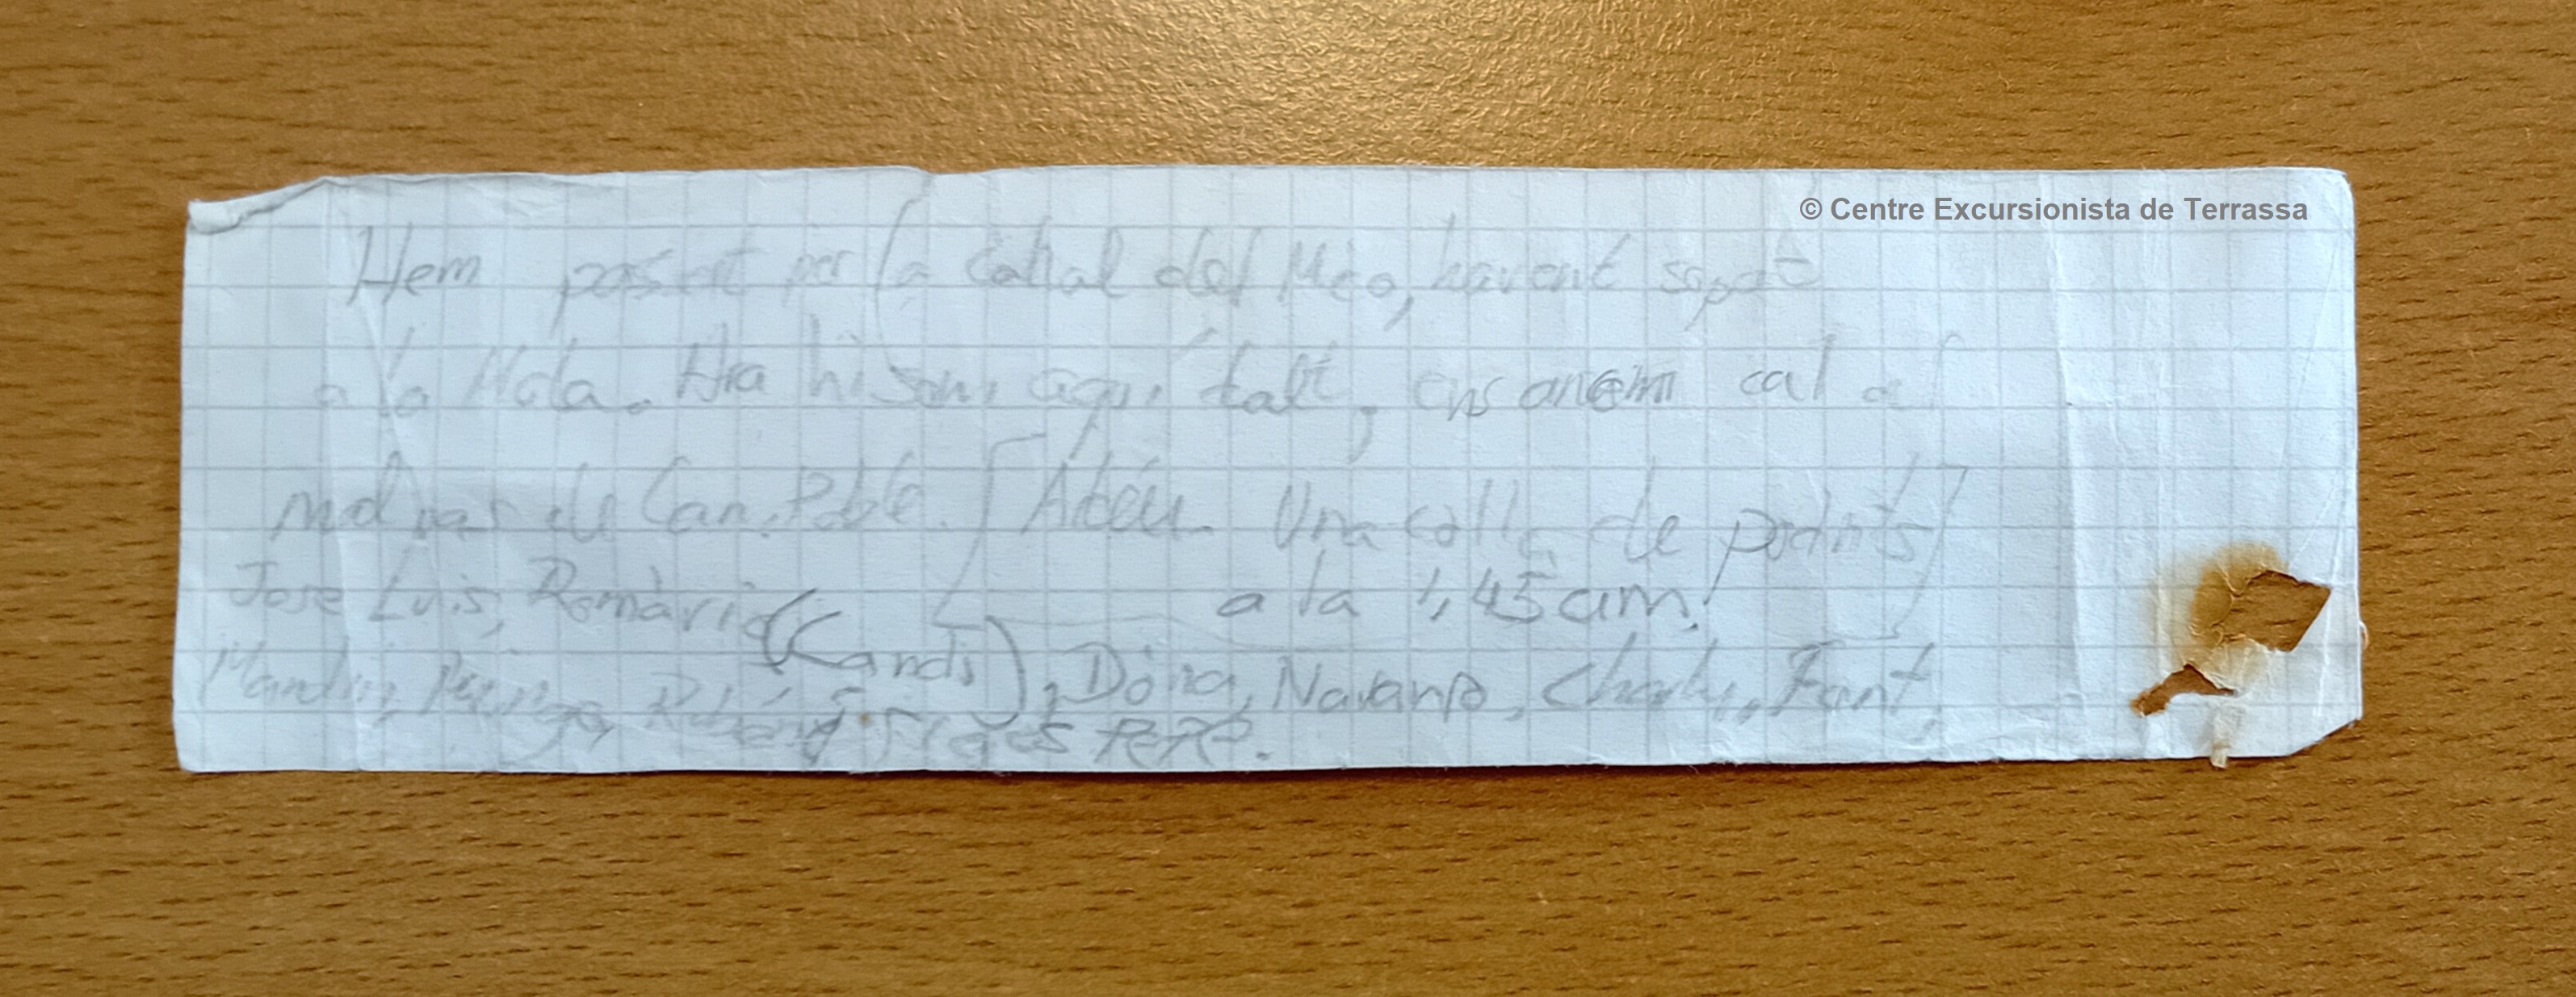 © Centre Excursionista de Terrassa
Hem passat per la canal del Mico, havent sopat
a la Mola. Ara hi som aquí dalt, ens anem cal al
mal pas de Can Poble. Adéu. Una colla de podrits
a la 1,45 am!
Jose Luis, Romàric (Candi), Dóna, Navarro, Charly, Font,
Rubén